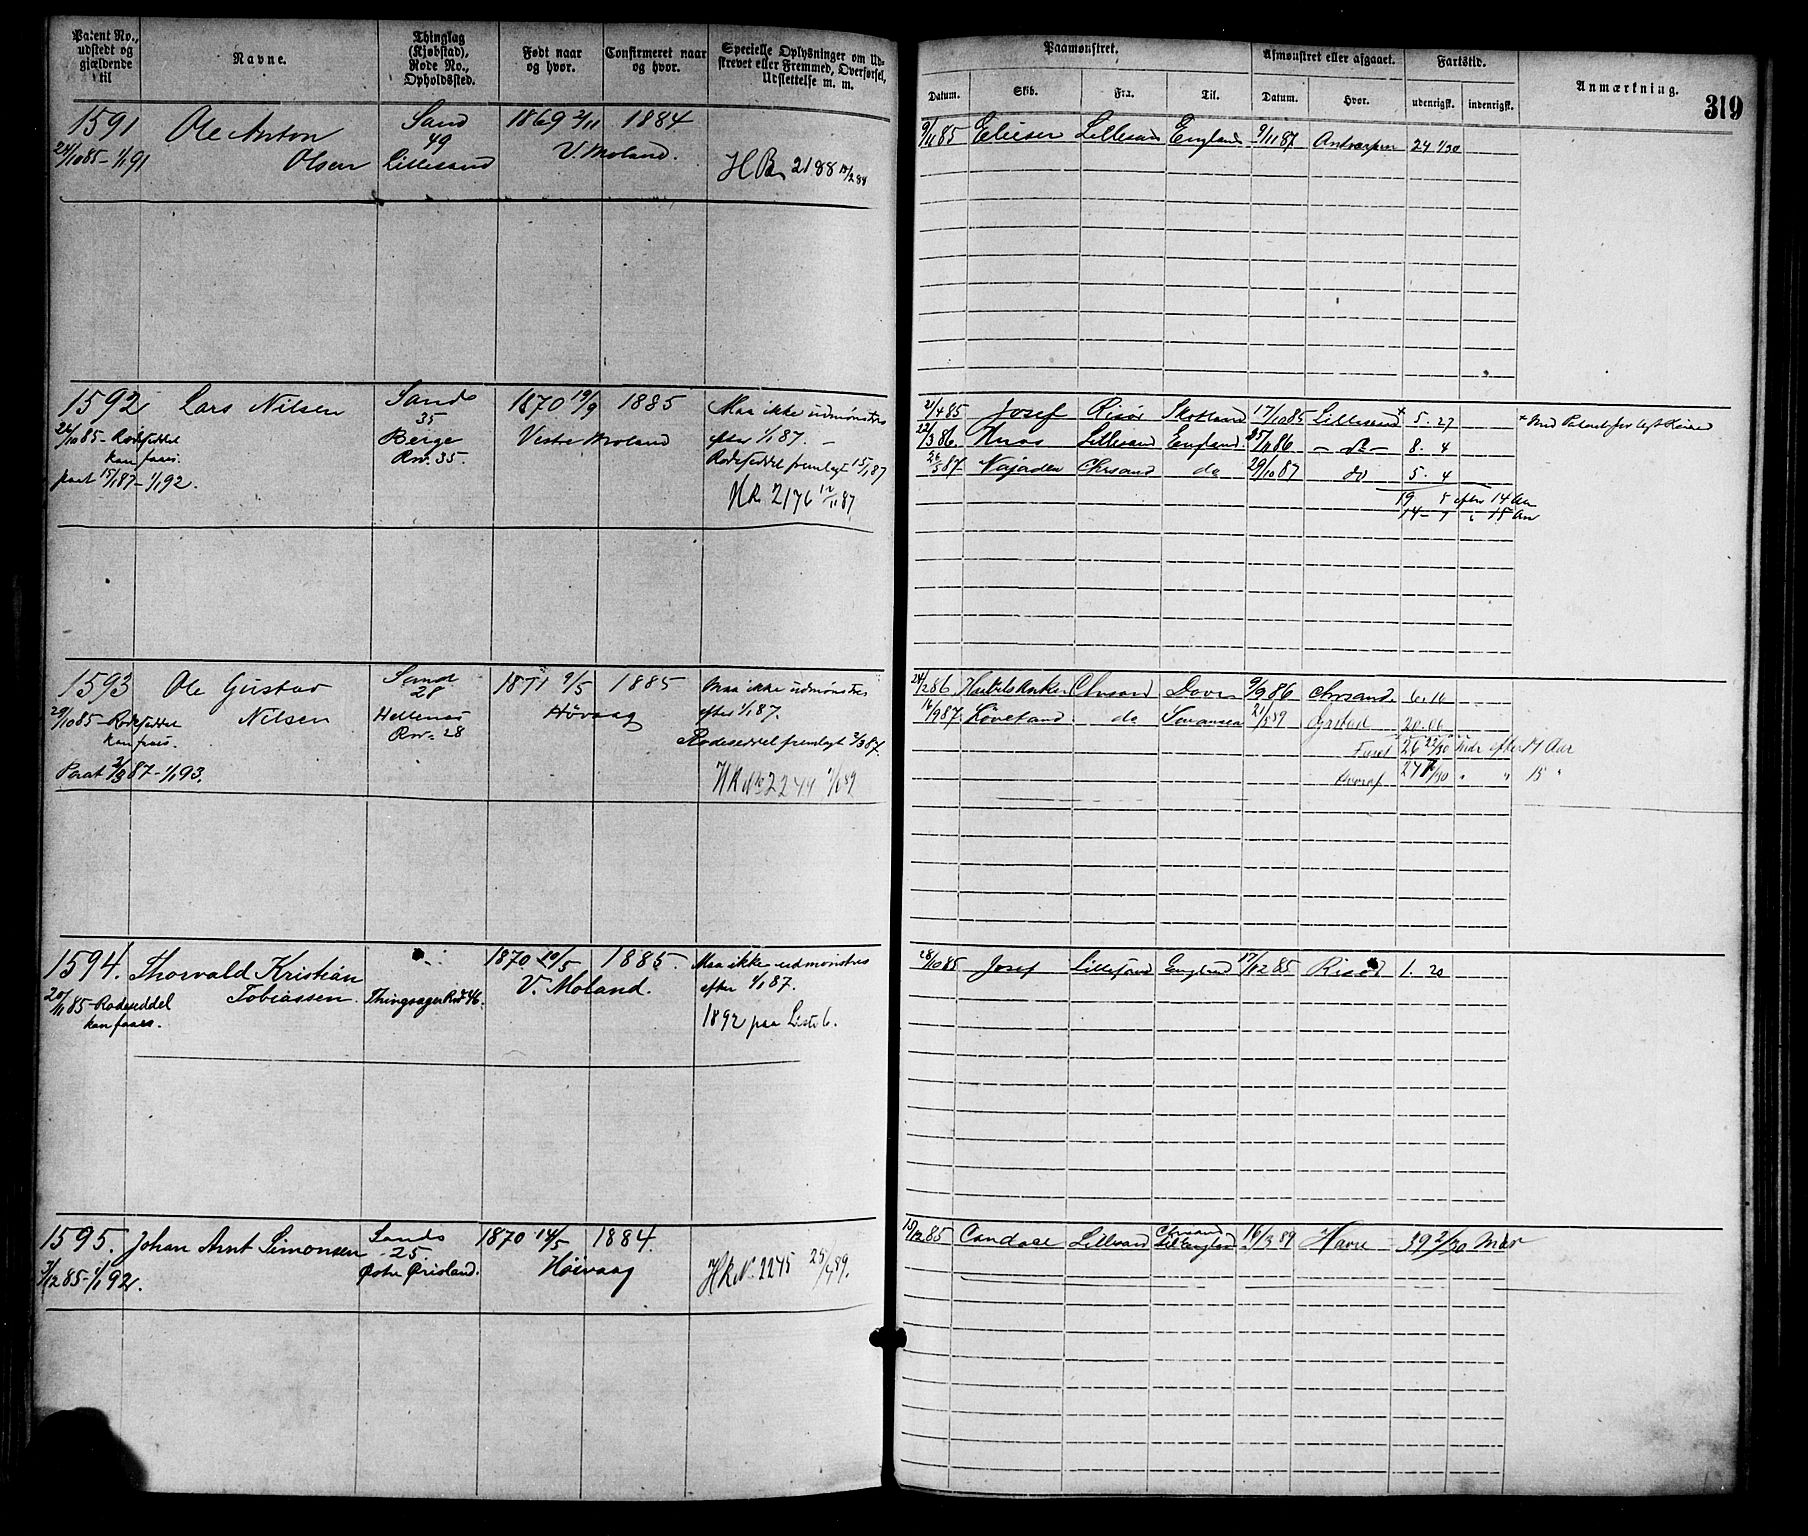 Patent No., udstedt og gjældende til
Navne.
Thinglag (Kjøbstad), Rode No., Opholdssted.
Født naar og hvor.
Confirmeret naar og hvor.
Specielle Oplysninger om Udskrevet eller Fremmed, Overførsel, Udslettelse m. m.
Paamønstret.
Datum. Skib. Fra. Til.
Afmønstret eller afgaaet.
Datum. Hvor.
Fartstid.
udenrigsk. indenrigsk.
Anmærkning.
319
1591 Ole Anton Sand 1869 2/11 1884
49
24/10 85 - 1/1 91 Olsen Lillesand V. Moland.
9/11 85 Elieser Lillesand England 9/11 87 Antwerpen 24 1/30
1592 Lars Nilsen Sands 1870 19/9 1885 Maa ikke udmønstres
35
26/10 85 - Rodeseddel Berge Vestre Moland efter 1/1 87. -
kan faaes. Rno. 35. Rodeseddel fremlagt 15/1 87
paat 15/1 87 - 1/1 92. HR. 2176 12/11 87
2/4 85 Josef Risør Skotland 17/10 85 Lillesand + 5. 27
22/3 86. Lillesand England. 86 - do - 8. 4
26/5 87. Najaden Chrsand do 29/10 87 do 5. 4
19 5 efter 14 Aar
14 - 7 " 15 Aar
1593 Ole Gustav Sand 1871 9/5 1885 Maa ikke udmønstres
28
29/10 85 - Rodeseddel Nilsen Hellenes Høvaag efter 1/1 87.
kan faaes. Rno. 28 Rodeseddel fremlagt 2/3 87.
Paat 2/3 87 - 1/1 93. HR No 2249
24/2 86 Chrsand Dover 9/9 86 Chrsand. 6.16
16/9 87. Løvetand. do Swansea 21/5 89 20.06
26 22/30 Mdr efter 14 Aar
hvoraf " " 15 "
1594. Thorvald Kristian 1870 10/5 1885. Maa ikke udmønstres
20/11 85 - Rodeseddel Tobiassen. Thingsager Rno 46. V. Moland. efter 1/1 87.
kan faaes. 1892 paa Liste 6.
28/10 85 Josef Lillesand England 17/12 85 Risør 1. 20
1595. Johan Arnt Simonsen Sands 1870 14/5 1884.
25.
7/12 85 - 1/1 92. Østre Ørisland. Høivaag HR No. 2275 25/4 89.
15/12 85 Candace Lillesand Chrsand til England 16/3 89 Havre 39 2/30 Mdr